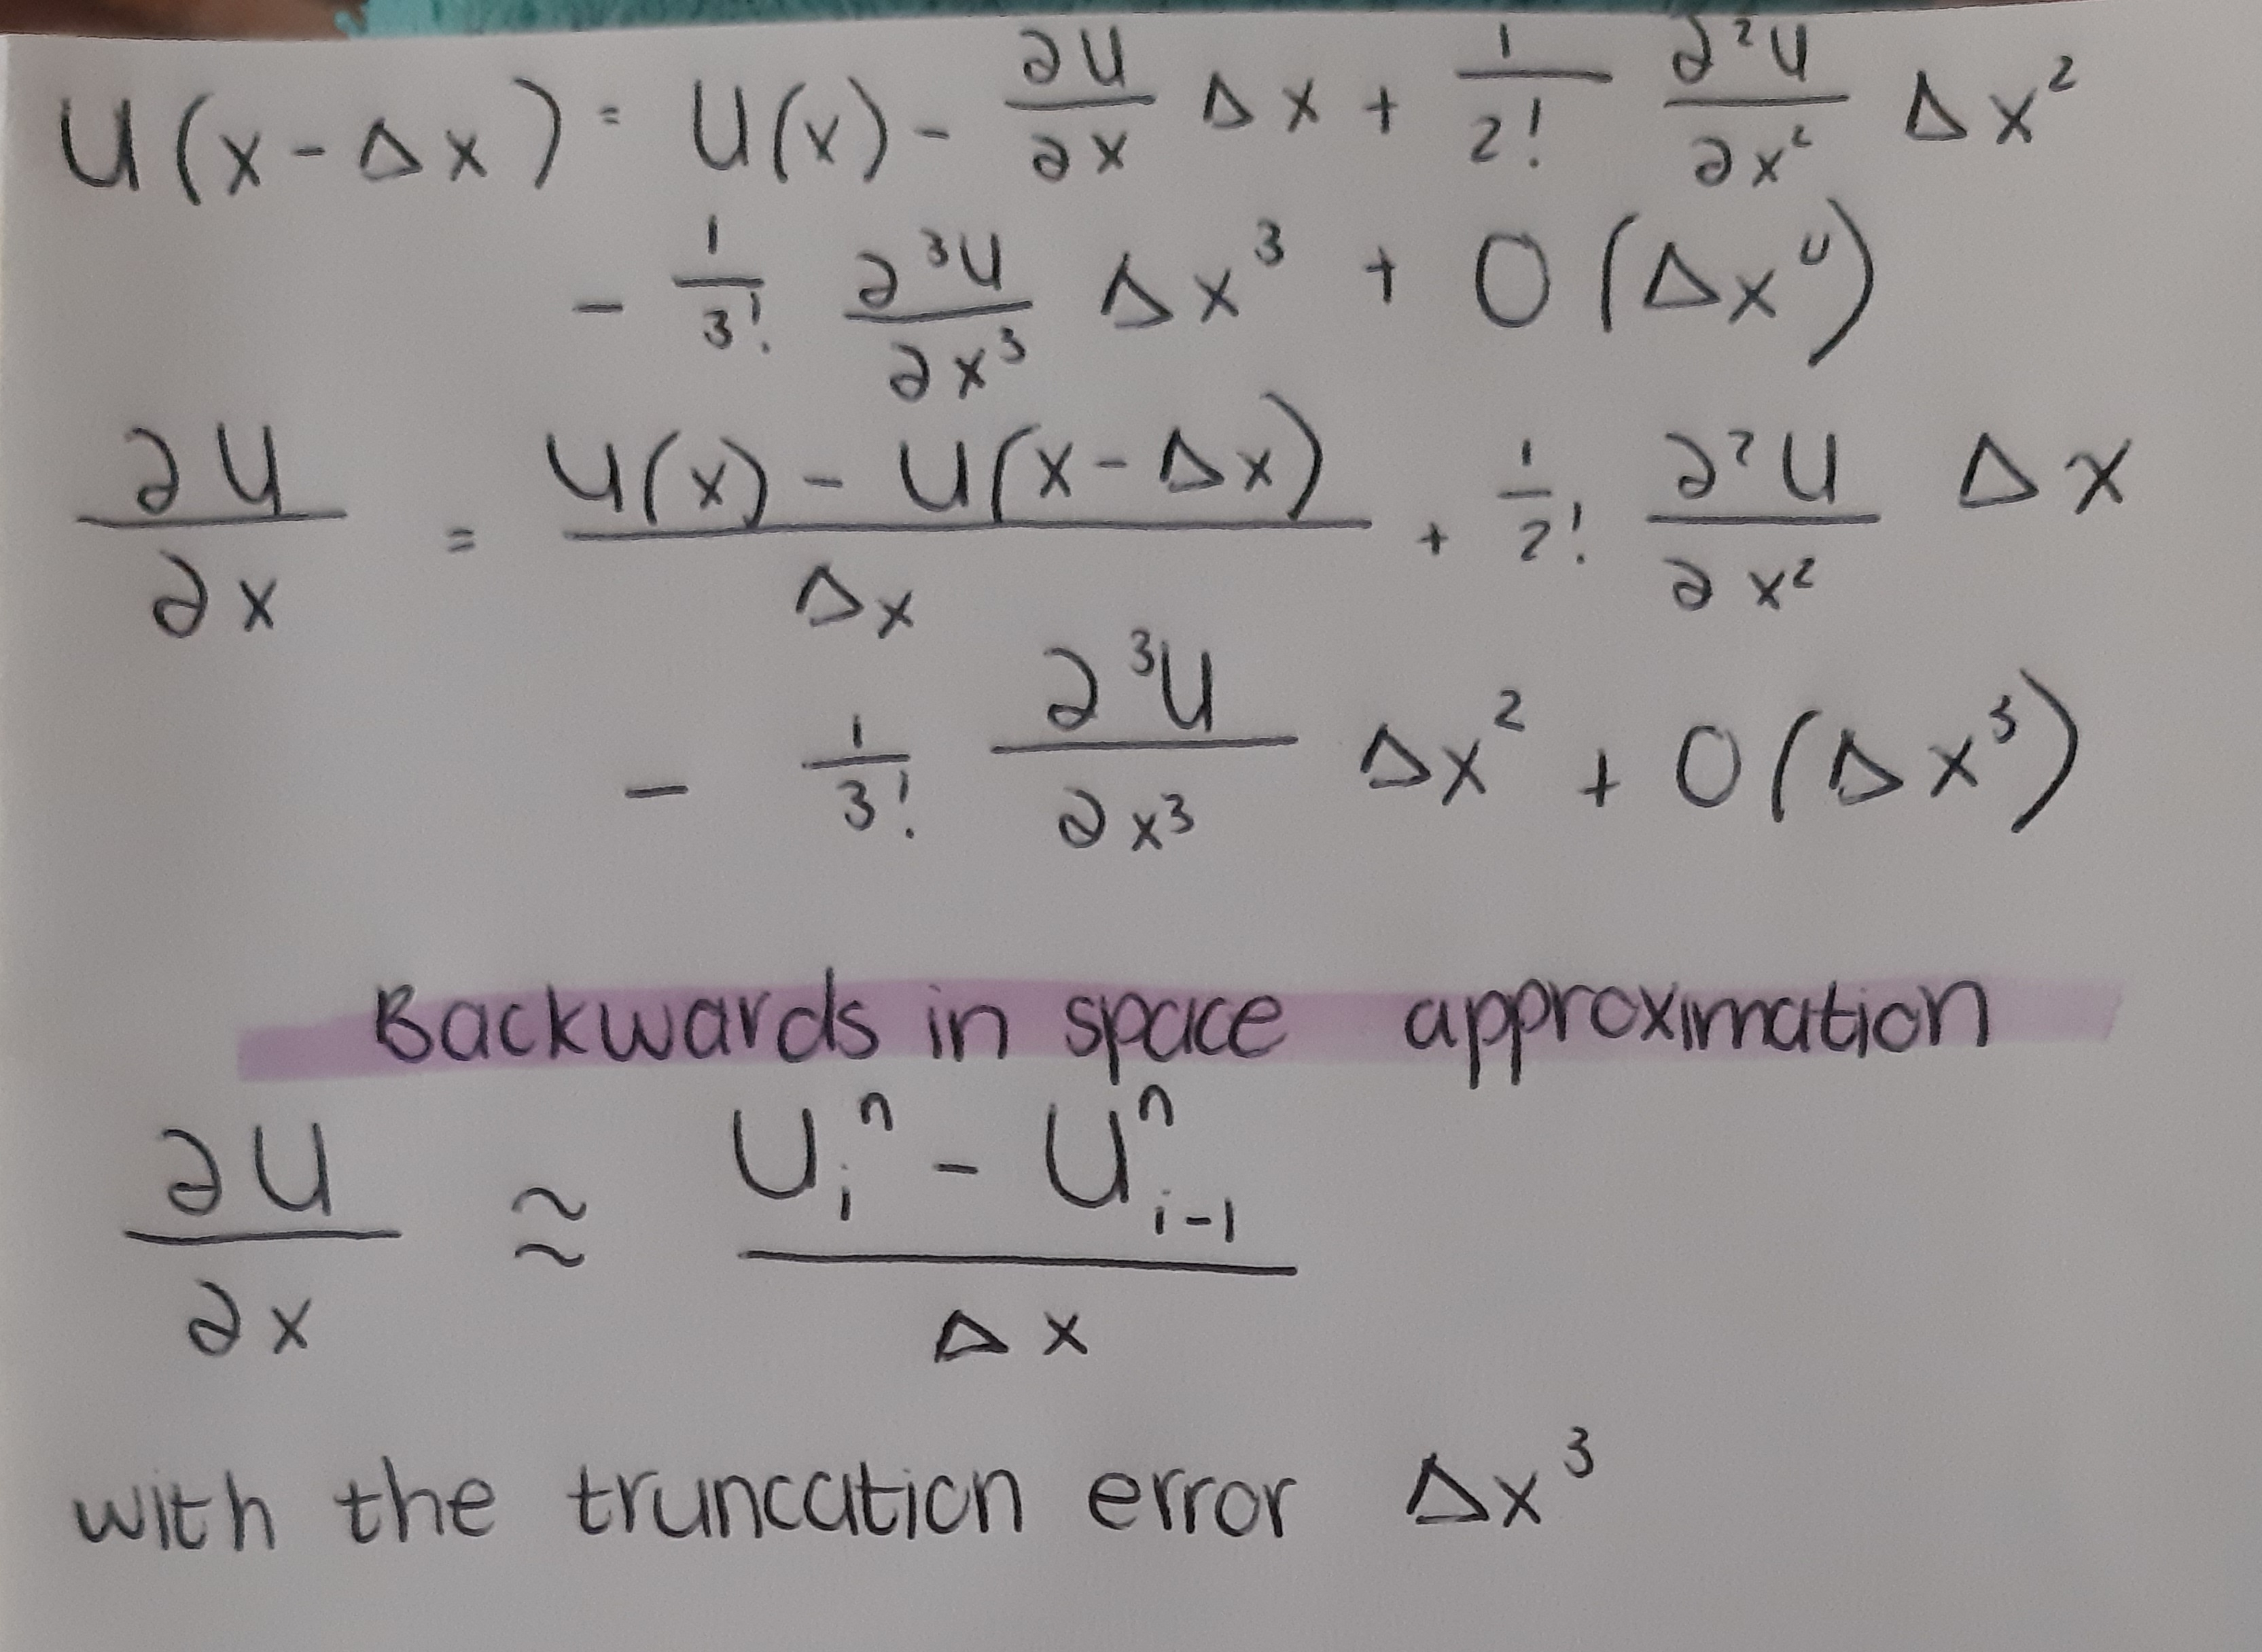 U(x-Δx) = U(x) - ∂U/∂x Δx + 1/2! ∂²U/∂x² Δx²
- 1/3! ∂³U/∂x³ Δx³ + O(Δx⁴)
∂U/∂x = (U(x) - U(x-Δx))/Δx + 1/2! ∂²U/∂x² Δx
- 1/3! ∂³U/∂x³ Δx² + O(Δx³)
Backwards in space approximation
∂U/∂x ≈ (Uᵢⁿ - Uⁿᵢ₋₁)/Δx
with the truncation error Δx³